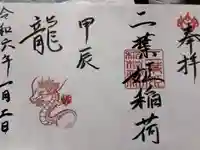 奉拝
二葉姫稲荷
甲辰
龍
令和六年一月二日